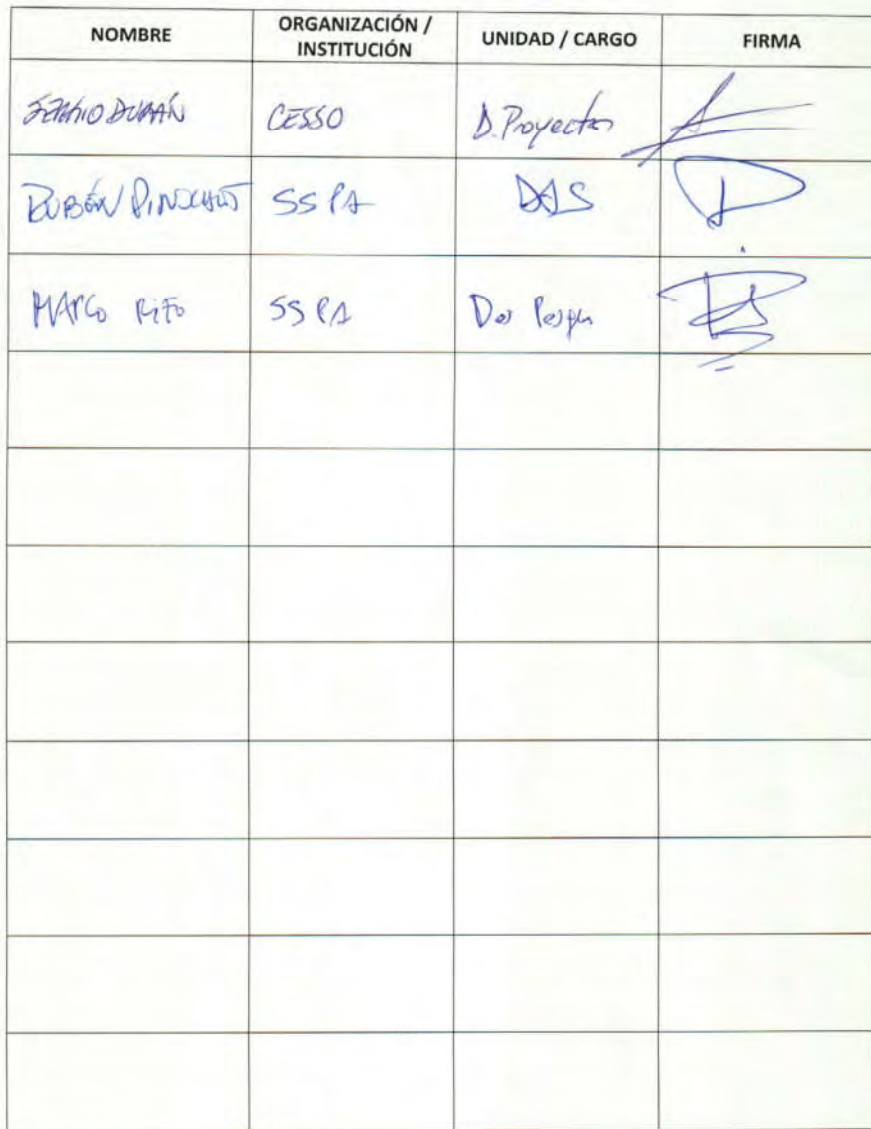 NOMBRE ORGANIZACIÓN / INSTITUCIÓN UNIDAD / CARGO FIRMA
SERGIO DURÁN CESSO D. Proyectos
RUBÉN PINOCHET SSPA DAS
MARCO RIFO SSPA